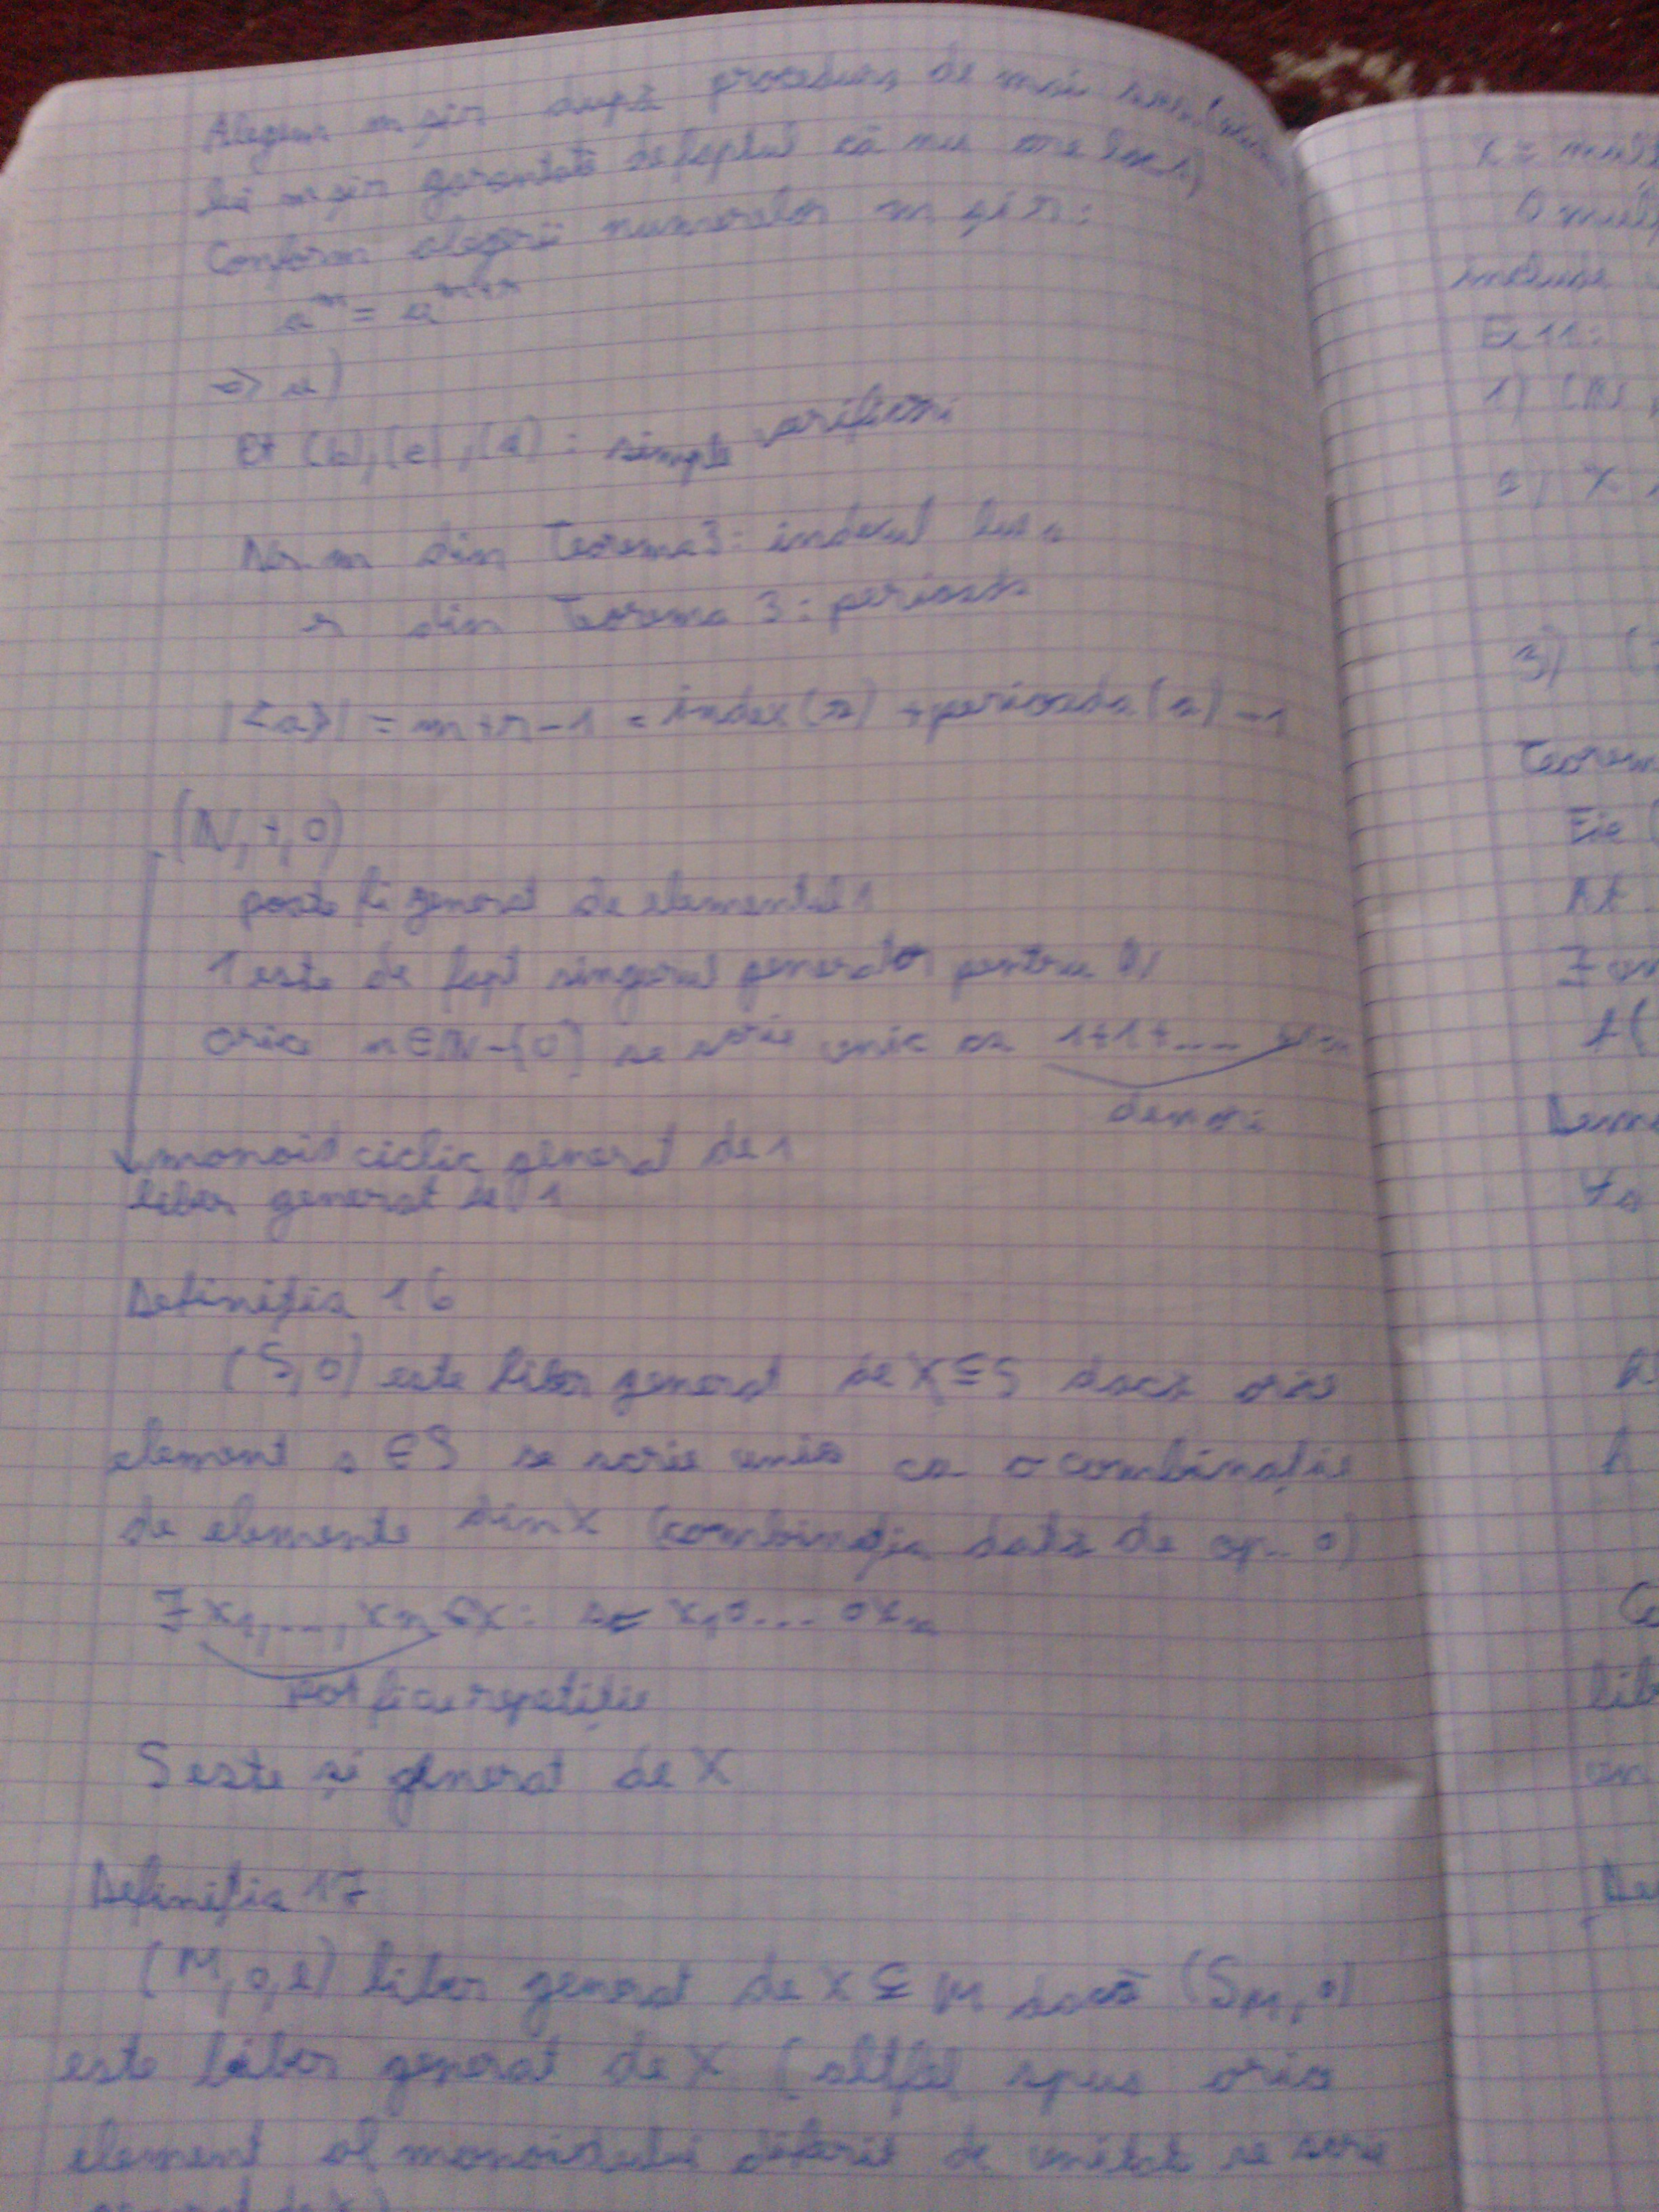 Alegem m și r după procedura de mai sus
lui m și r garantată de faptul că nu are loc 1)
Conform alegerii numerelor m și r:
a^m = a^{m+r}
=> a)
Pt (b), (c), (d): simple verificări
Nr. m din Teorema 3: indexul lui a
r din Teorema 3: perioada
|<a>| = m+r-1 = index(a) + perioada(a) - 1
(N, +, 0)
poate fi generat de elementul 1
1 este de fapt singurul generator pentru N
orice n ∈ N-{0} se scrie unic ca 1+1+...
de n ori
monoid ciclic generat de 1
liber generat de 1
Definiția 16
(S, o) este liber generat de X ⊆ S dacă orice
element s ∈ S se scrie unic ca o combinație
de elemente din X (combinația dată de op. o)
∃ x₁, ..., xₙ ∈ X: s = x₁ o ... o xₙ
pot fi cu repetiție
S este și generat de X
Definiția 17
(M, o, 1) liber generat de X ⊆ M dacă (S_M, o)
este liber generat de X (altfel spus orice
element al monoidului diferit de unitate se scrie
X = mult
O mulț
incluse
Ex 11:
1) (N,
2) X
3) (
Teorem
Fie (
At
∃ un
f(
Dem
∀a
lib
un
De